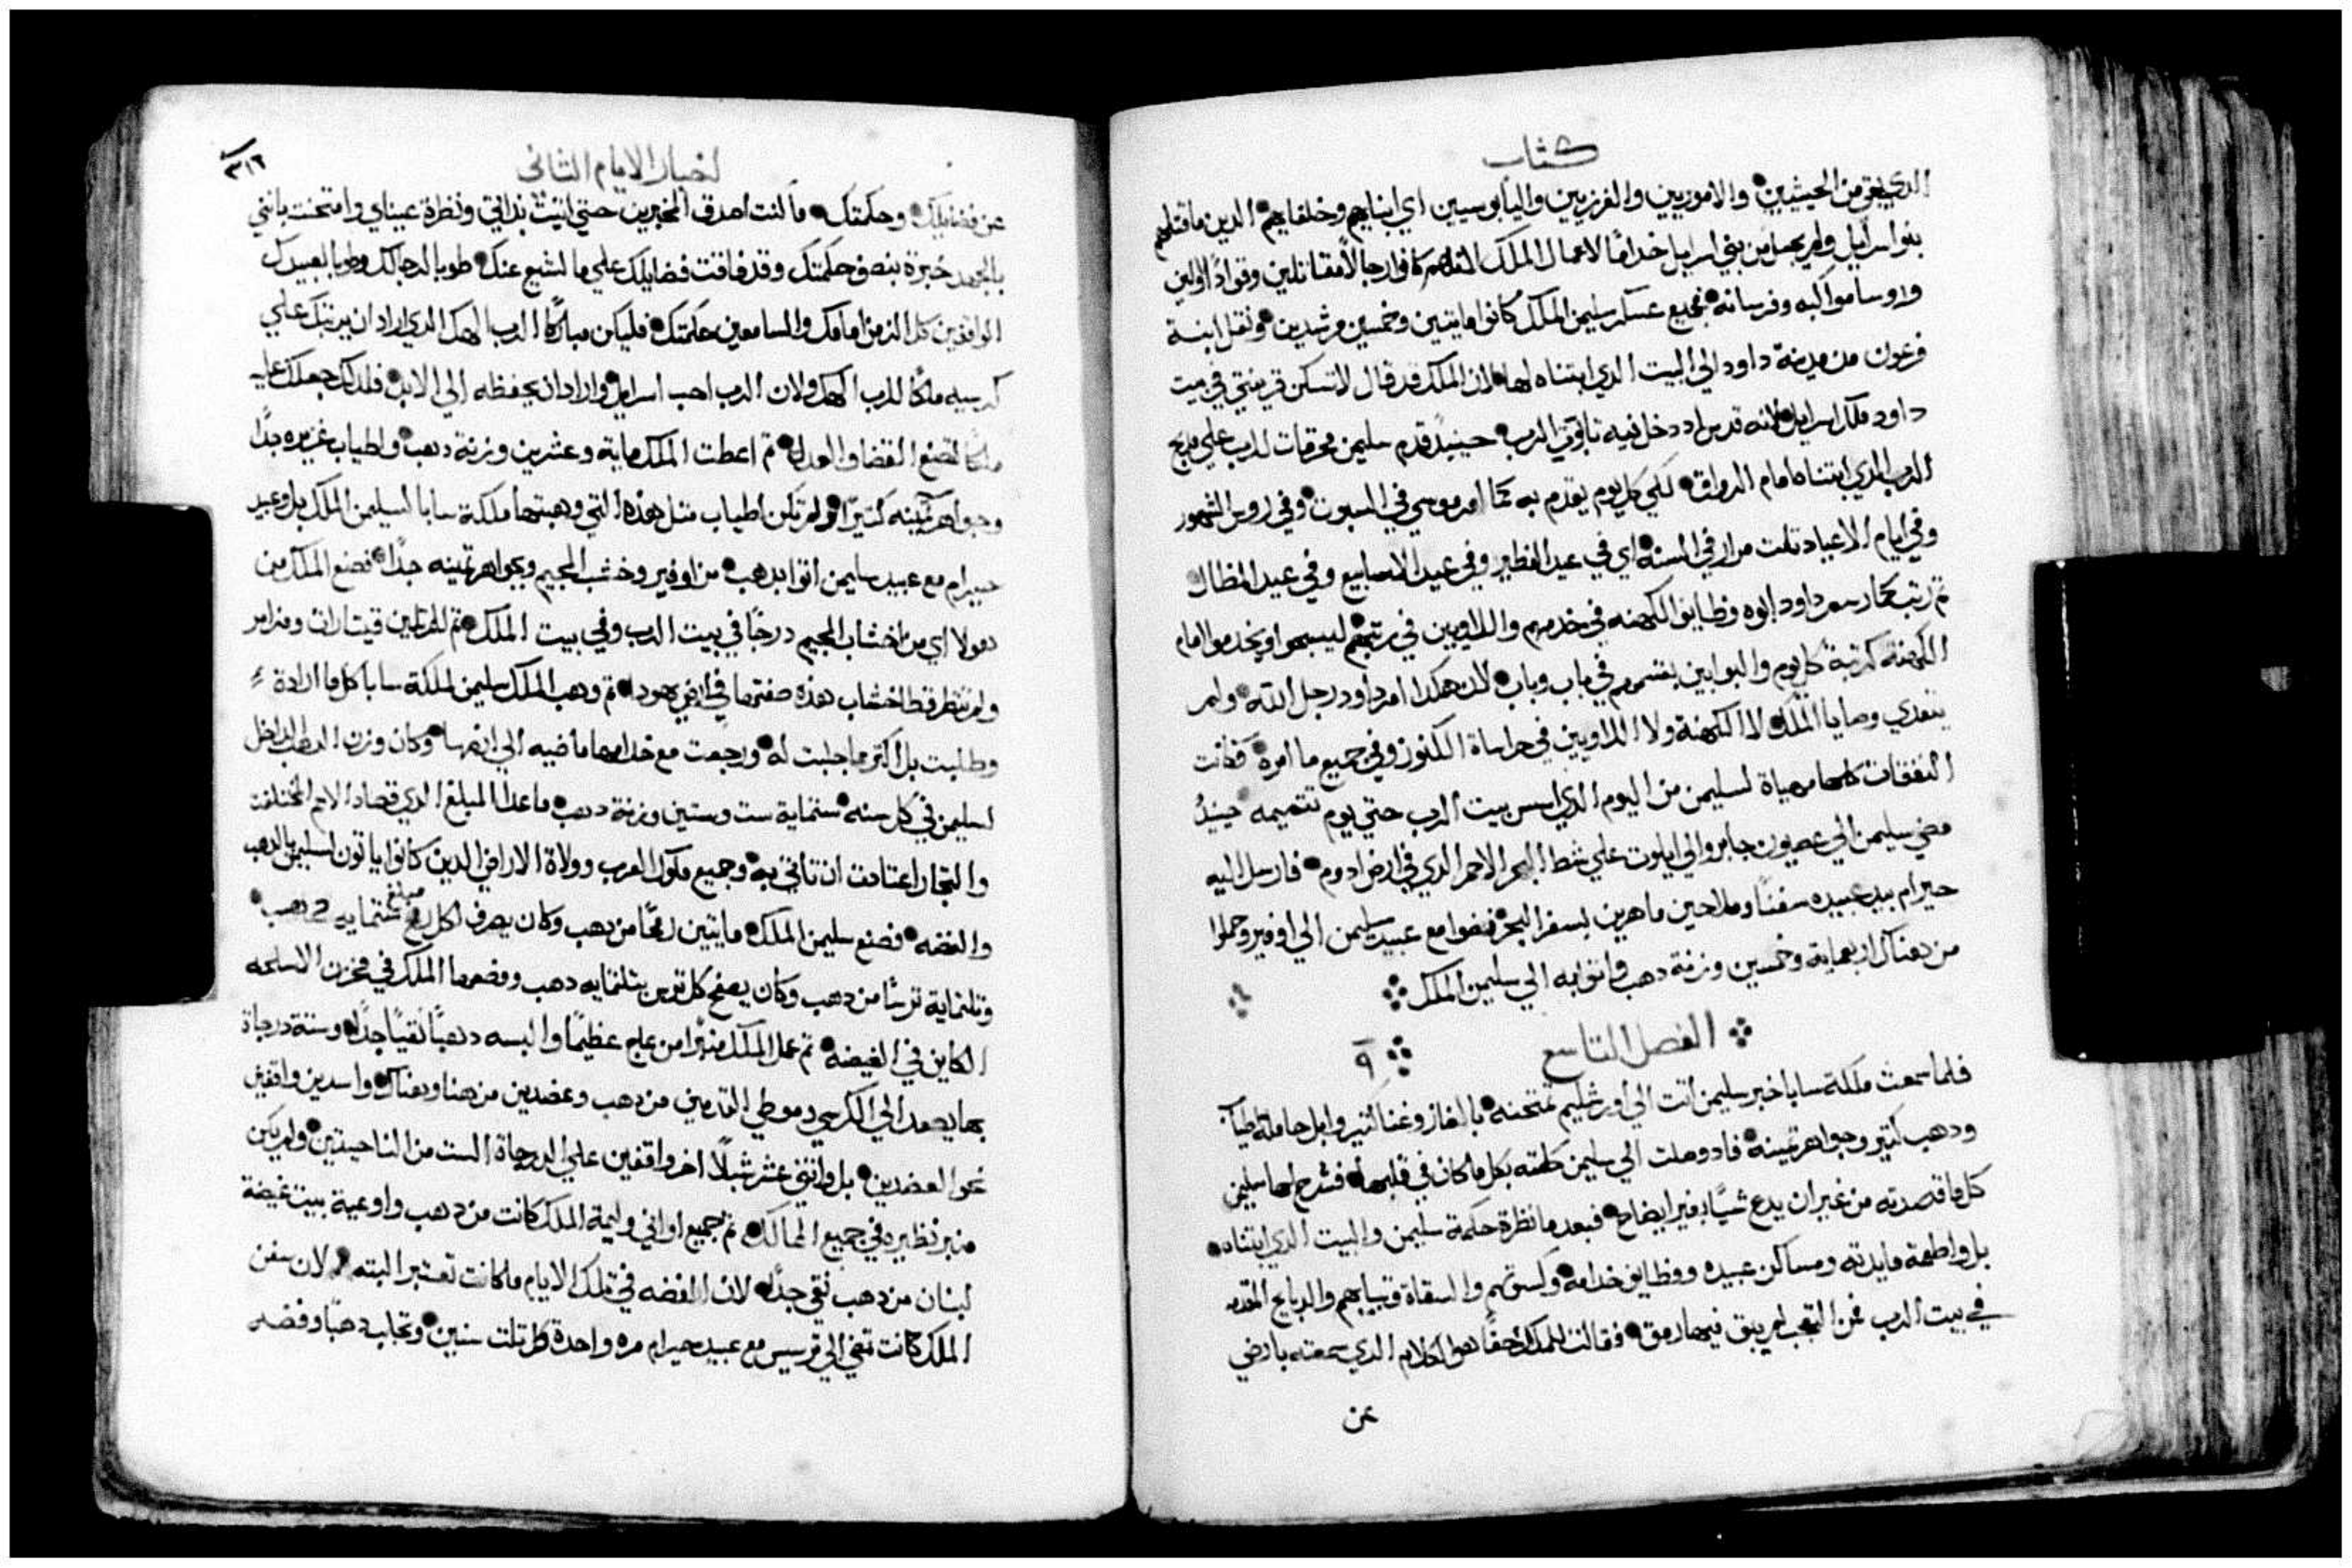 كتاب
الدي بقي من الحيثيين والاموريين والفرزيين واليابوسيين اي ابنايهم وخلفايهم الدين ما قتلهم
بنو اسراييل ولم يجعل من بني اسراييل خدامًا لاعمال الملك كانوا رجالاً مقاتلين وقوادًا اولين
وروسا مواكبه وفرسانه فجميع عسكر سليمن الملك كانوا مايتين وخمسين مرشدين ونقل ابنة
فرعون من مدينة داود الي البيت الدي ابتناه لها لان الملك قد قال لا تسكن قرينتي في بيت
داود ملك اسراييل لانه قدس اد دخل فيه تابوت الرب حينيدٍ قدم سليمن محرقات للرب علي مدبح
الرب الدي ابتناه امام الرواق لكي كل يوم يقدم به كما امر موسي في السبوت وفي روس الشهور
وفي ايام الاعياد تلت مرار في السنه اي في عيد الفطير وفي عيد الاسابيع وفي عيد المظال
تم رتب كما رسم داود ابوه وظايف الكهنه في خدمهم واللاويين في رتبهم ليسبحوا ويخدموا امام
الكهنة كرتبة كل يوم والبوابين بقسمهم في باب وباب لان هكدا امر داود رجل الله ولم
يتعدي وصايا الملك لا الكهنة ولا اللاويين في حراسة الكنوز وفي جميع ما امره فكانت
النفقات كلها مهياة لسليمن من اليوم الدي اسس بيت الرب حتي يوم تتميمه حينيدٍ
مضي سليمن الي عصيون جابر والي ايلوت علي شط البحر الاحمر الدي في ارض ادوم فارسل اليه
حيرام بيد عبيده سفنًا وملاحين ماهرين بسفر البحر فمضوا مع عبيد سليمن الي اوفير وحملوا
من هناك اربعماية وخمسين وزنة دهب واتوا به الي سليمن الملك
الفصل التاسع ٩
فلما سمعت ملكة سابا خبر سليمن اتت الي اورشليم تمتحنه بالغاز وغنا كتير وابل حاملة طيابًا
ودهب كتير وجواهر تمينه فاد وصلت الي سليمن كلمته بكل ما كان في قلبها فشرح لها سليمن
كل ما قصدته من غير ان يدع شيًا بغير ايضاح فبعد ما نظرة حكمة سليمن والبيت الدي ابتناه
بل واطعمة مايدته ومساكن عبيده ووظايف خدامه وكسوتهم والسقاة وتيابهم والدبايح المقدمه
في بيت الرب فمن التعجب لم يبق فيها رمق فقالت للملك حقًا هو الكلام الدي سمعته بارضي
عن
اخبار الايام التاني
٣١٢
عن فضايلك وحكمتك ما كنت اصدق المخبرين حتي اتيت بداتي ونظرة عيناي وامتحنت بانني
بالجهد خبرة بنصف حكمتك وقد فاقت فضايلك علي ما اشيع عنك طوبا لرجالك وطوبا لعبيدك
الواقفين كل الزمن امامك والسامعين حكمتك فليكن مباركًا الرب الهك الدي اراد ان يرتبك علي
كرسيه ملكًا للرب الهك ولان الرب احب اسراييل واراد ان يحفظه الي الابد فلدلك جعلك عليه
ملكًا لتصنع القضا والعدل تم اعطت الملك ماية وعشرين وزنة دهب واطياب غزيره جدًا
وجواهر تمينه كتيرًا ولم تكن اطياب متل هذه التي وهبتها ملكة سابا لسليمن الملك بل وعبيد
حيرام مع عبيد سليمن اتوا بدهب من اوفير وخشب الجيم وبجواهر تمينه جدًا فصنع الملك من
هولا اي من اخشاب الجيم درجًا في بيت الرب وفي بيت الملك تم للمرتلين قيتارات ومزامر
ولم تنظر قط اخشاب هذه صفتها في ارض يهودا تم وهب الملك سليمن لملكة سابا كل ما ارادة
وطلبت بل اكتر مما جلبت له ورجعت مع خدامها ماضيه الي ارضها وكان وزن الدهب الداخل
لسليمن في كل سنه ستماية ست وستين وزنة دهب ماعدا المبلغ الدي قصاد الامم المختلفه
والتجار اعتادت ان تاتي به وجميع ملوك العرب وولاة الاراضي الدين كانوا ياتون لسليمن بالدهب
والفضه فصنع سليمن الملك مايتين رمحًا من دهب وكان يصرف لكل رمح مبلغ ستمايه دهب
وتلتماية ترسًا من دهب وكان يصفح كل ترس بتلتمايه دهب ووضعها الملك في مخزن الاسلحه
الكاين في الغيضه تم عمل الملك منبرًا من عاج عظيمًا والبسه دهبًا نقيًا جدًا وستة درجاة
بها يصعد الي الكرسي وموطي القدمين من دهب وعضدين من هنا وهناك واسدين واقفين
نحو العضدين بل واتني عشر شبلًا اخر واقفين علي الدرجاة الست من الناحيتين ولم يكن
منبر نظيره في جميع الممالك تم جميع اواني وليمة الملك كانت من دهب واوعية بيت غيضة
لبنان من دهب نقي جدًا لان الفضه في تلك الايام ما كانت تعتبر البته لان سفن
الملك كانت تمضي الي ترسيس مع عبيد حيرام مره واحدة كل تلت سنين وتجلب دهبًا وفضه